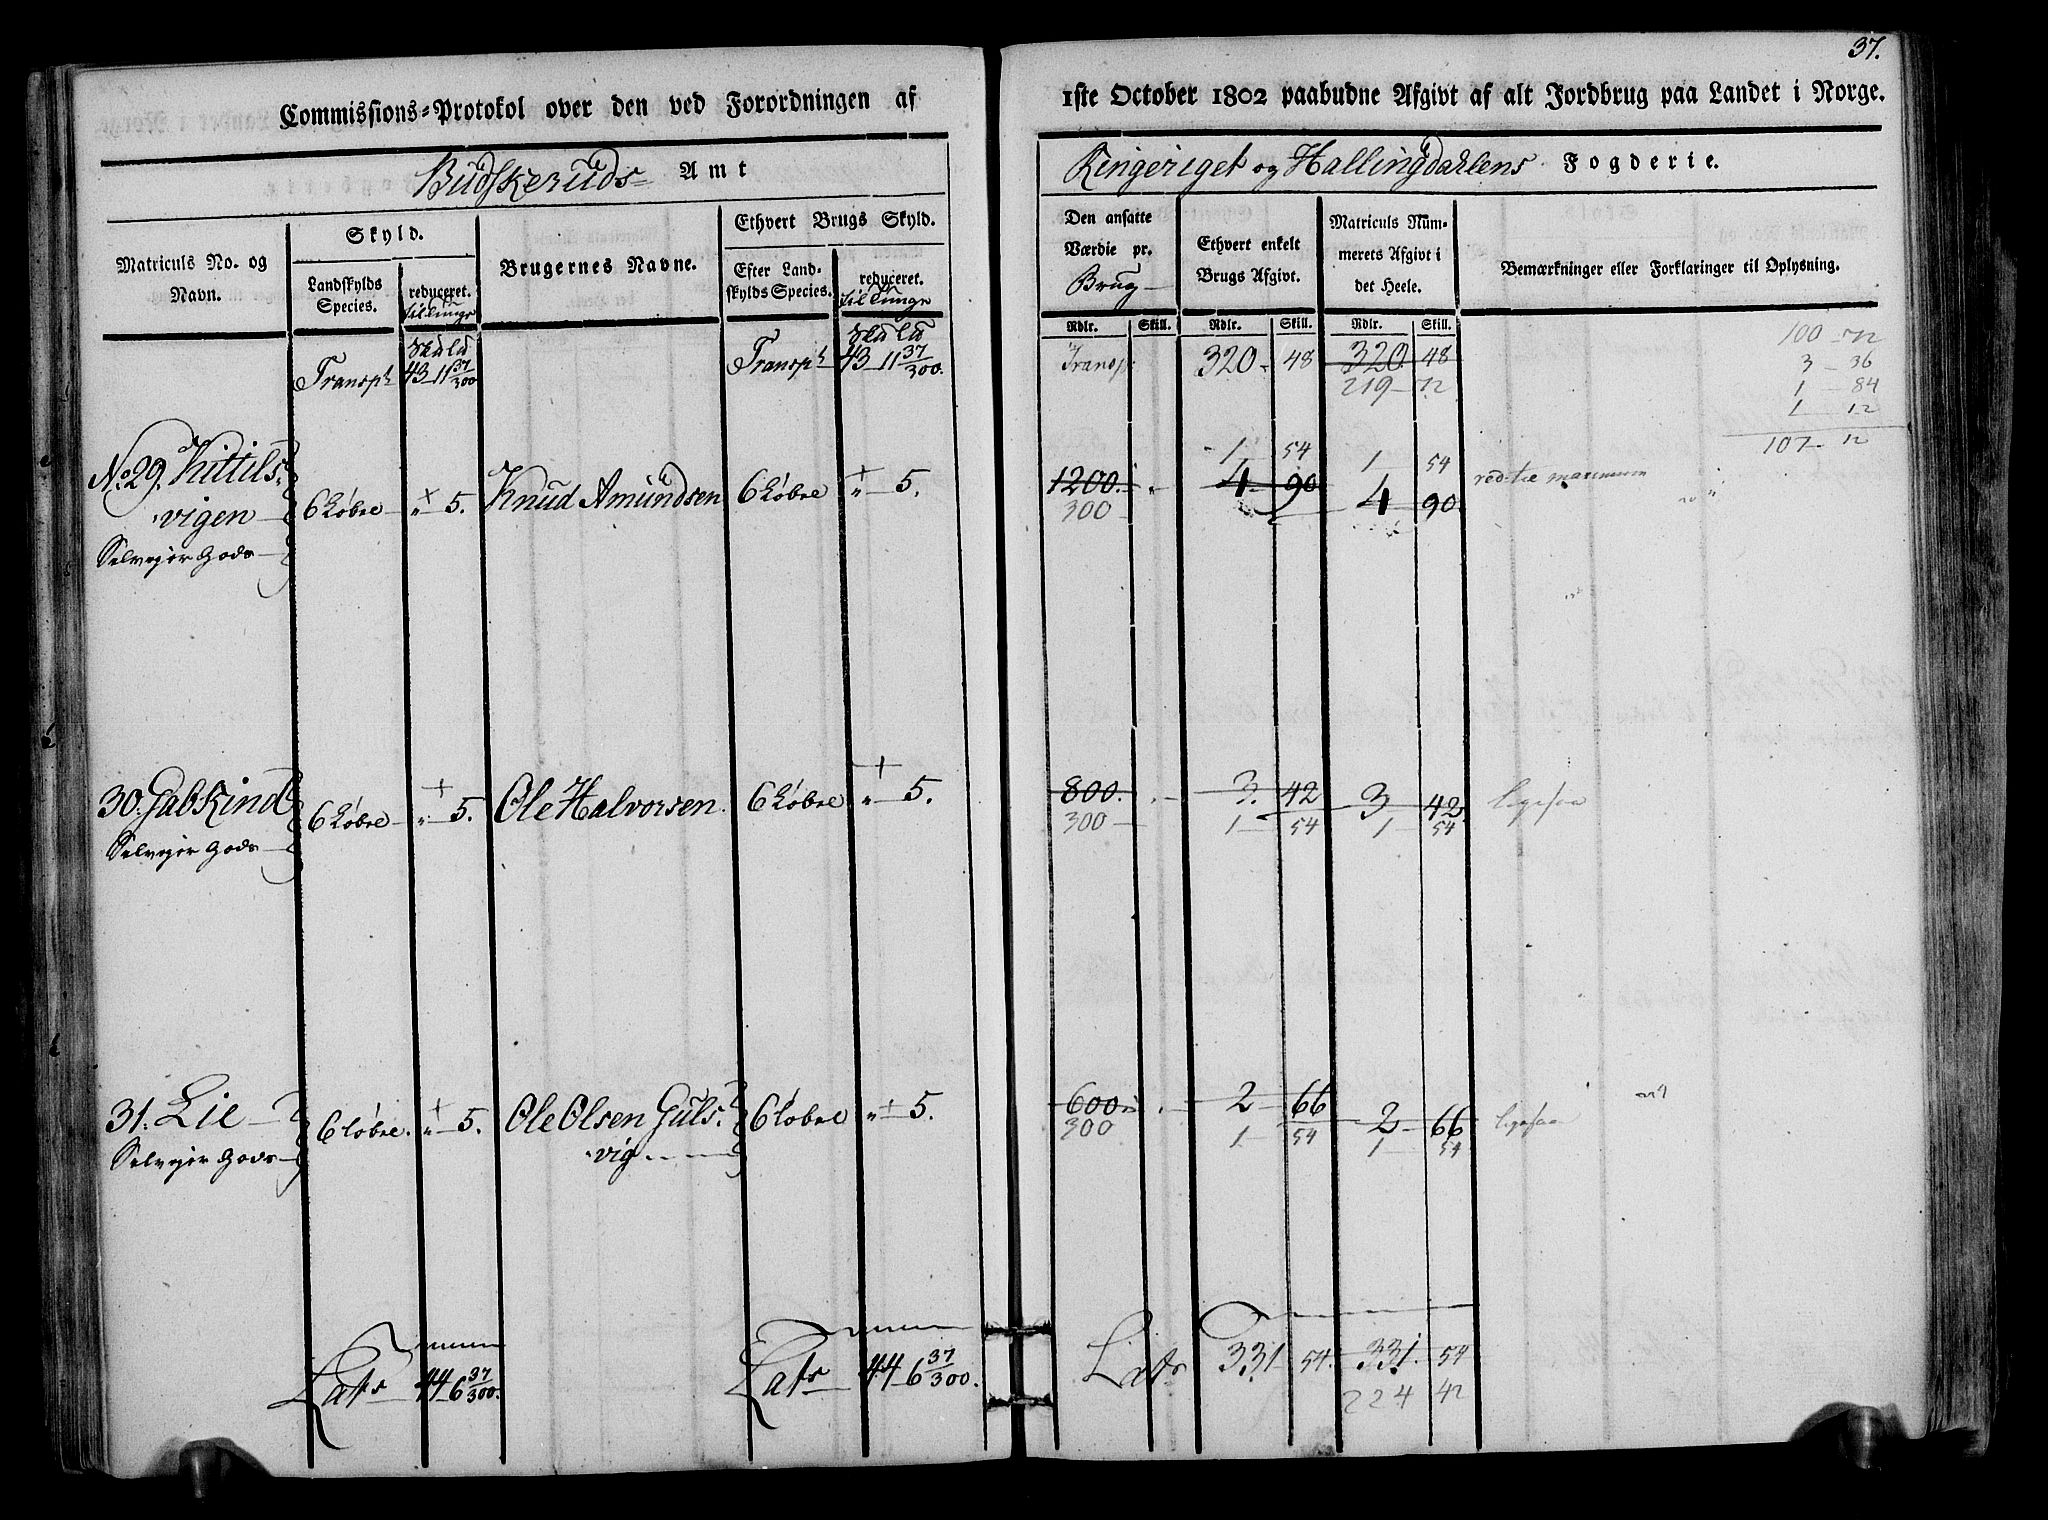 37.
Commissions-Protokol over den ved Forordningen af
1ste October 1802 paabudne Afgivt af alt Jordbrug paa Landet i Norge.
Budskeruds Amt
Ringeriget og Hallingdahlens Fogderie.
Matriculs No. og Navn.
Skyld.
Landskylds Species.
reduceret. til Tunge
Brugernes Navne.
Ethvert Brugs Skyld.
Efter Landskylds Species.
reduceret. til Tunge
Den ansatte Værdie pr. Brug
Ethvert enkelt Brugs Afgivt.
Matriculs Nummerets Afgivt i det Heele.
Bemærkninger eller Forklaringer til Oplysning.
Rdlr. Skill. Rdlr. Skill. Rdlr. Skill.
Sku Lu Sku Lu
Transpt 43 11 37/300 Transpt 43 11 37/300. Transp. 320 - 48 320 48
219 - 72
100 - 72
3 - 36
1 - 84
1 - 12
107 - 12
1 54 1 54
No 29. Kittils- 6 Løbse " 5. Knud Amundsen 6 Løbse " 5. 1200. " 4 - 90 4 90
vigen 300
Selvejer Gods
30. Gabkind 6 Løbse " 5. Ole Halvorsen. 6 Løbse " 5. 800. " 3. 42 3 42 ligesaa
Selvejer Gods 300 1 - 54 1 - 54
31. Lie 6 Løbse " 5. Ole Olsen Guls- 6 Løbse " 5. 600 " 2 - 66 2 - 66 ligesaa
Selvejer Gods vig 300 1 - 54 1 - 54
Lats 44 6 37/300. Lats 44 6 37/300. Lats 331 - 54. 331. 54
224 42